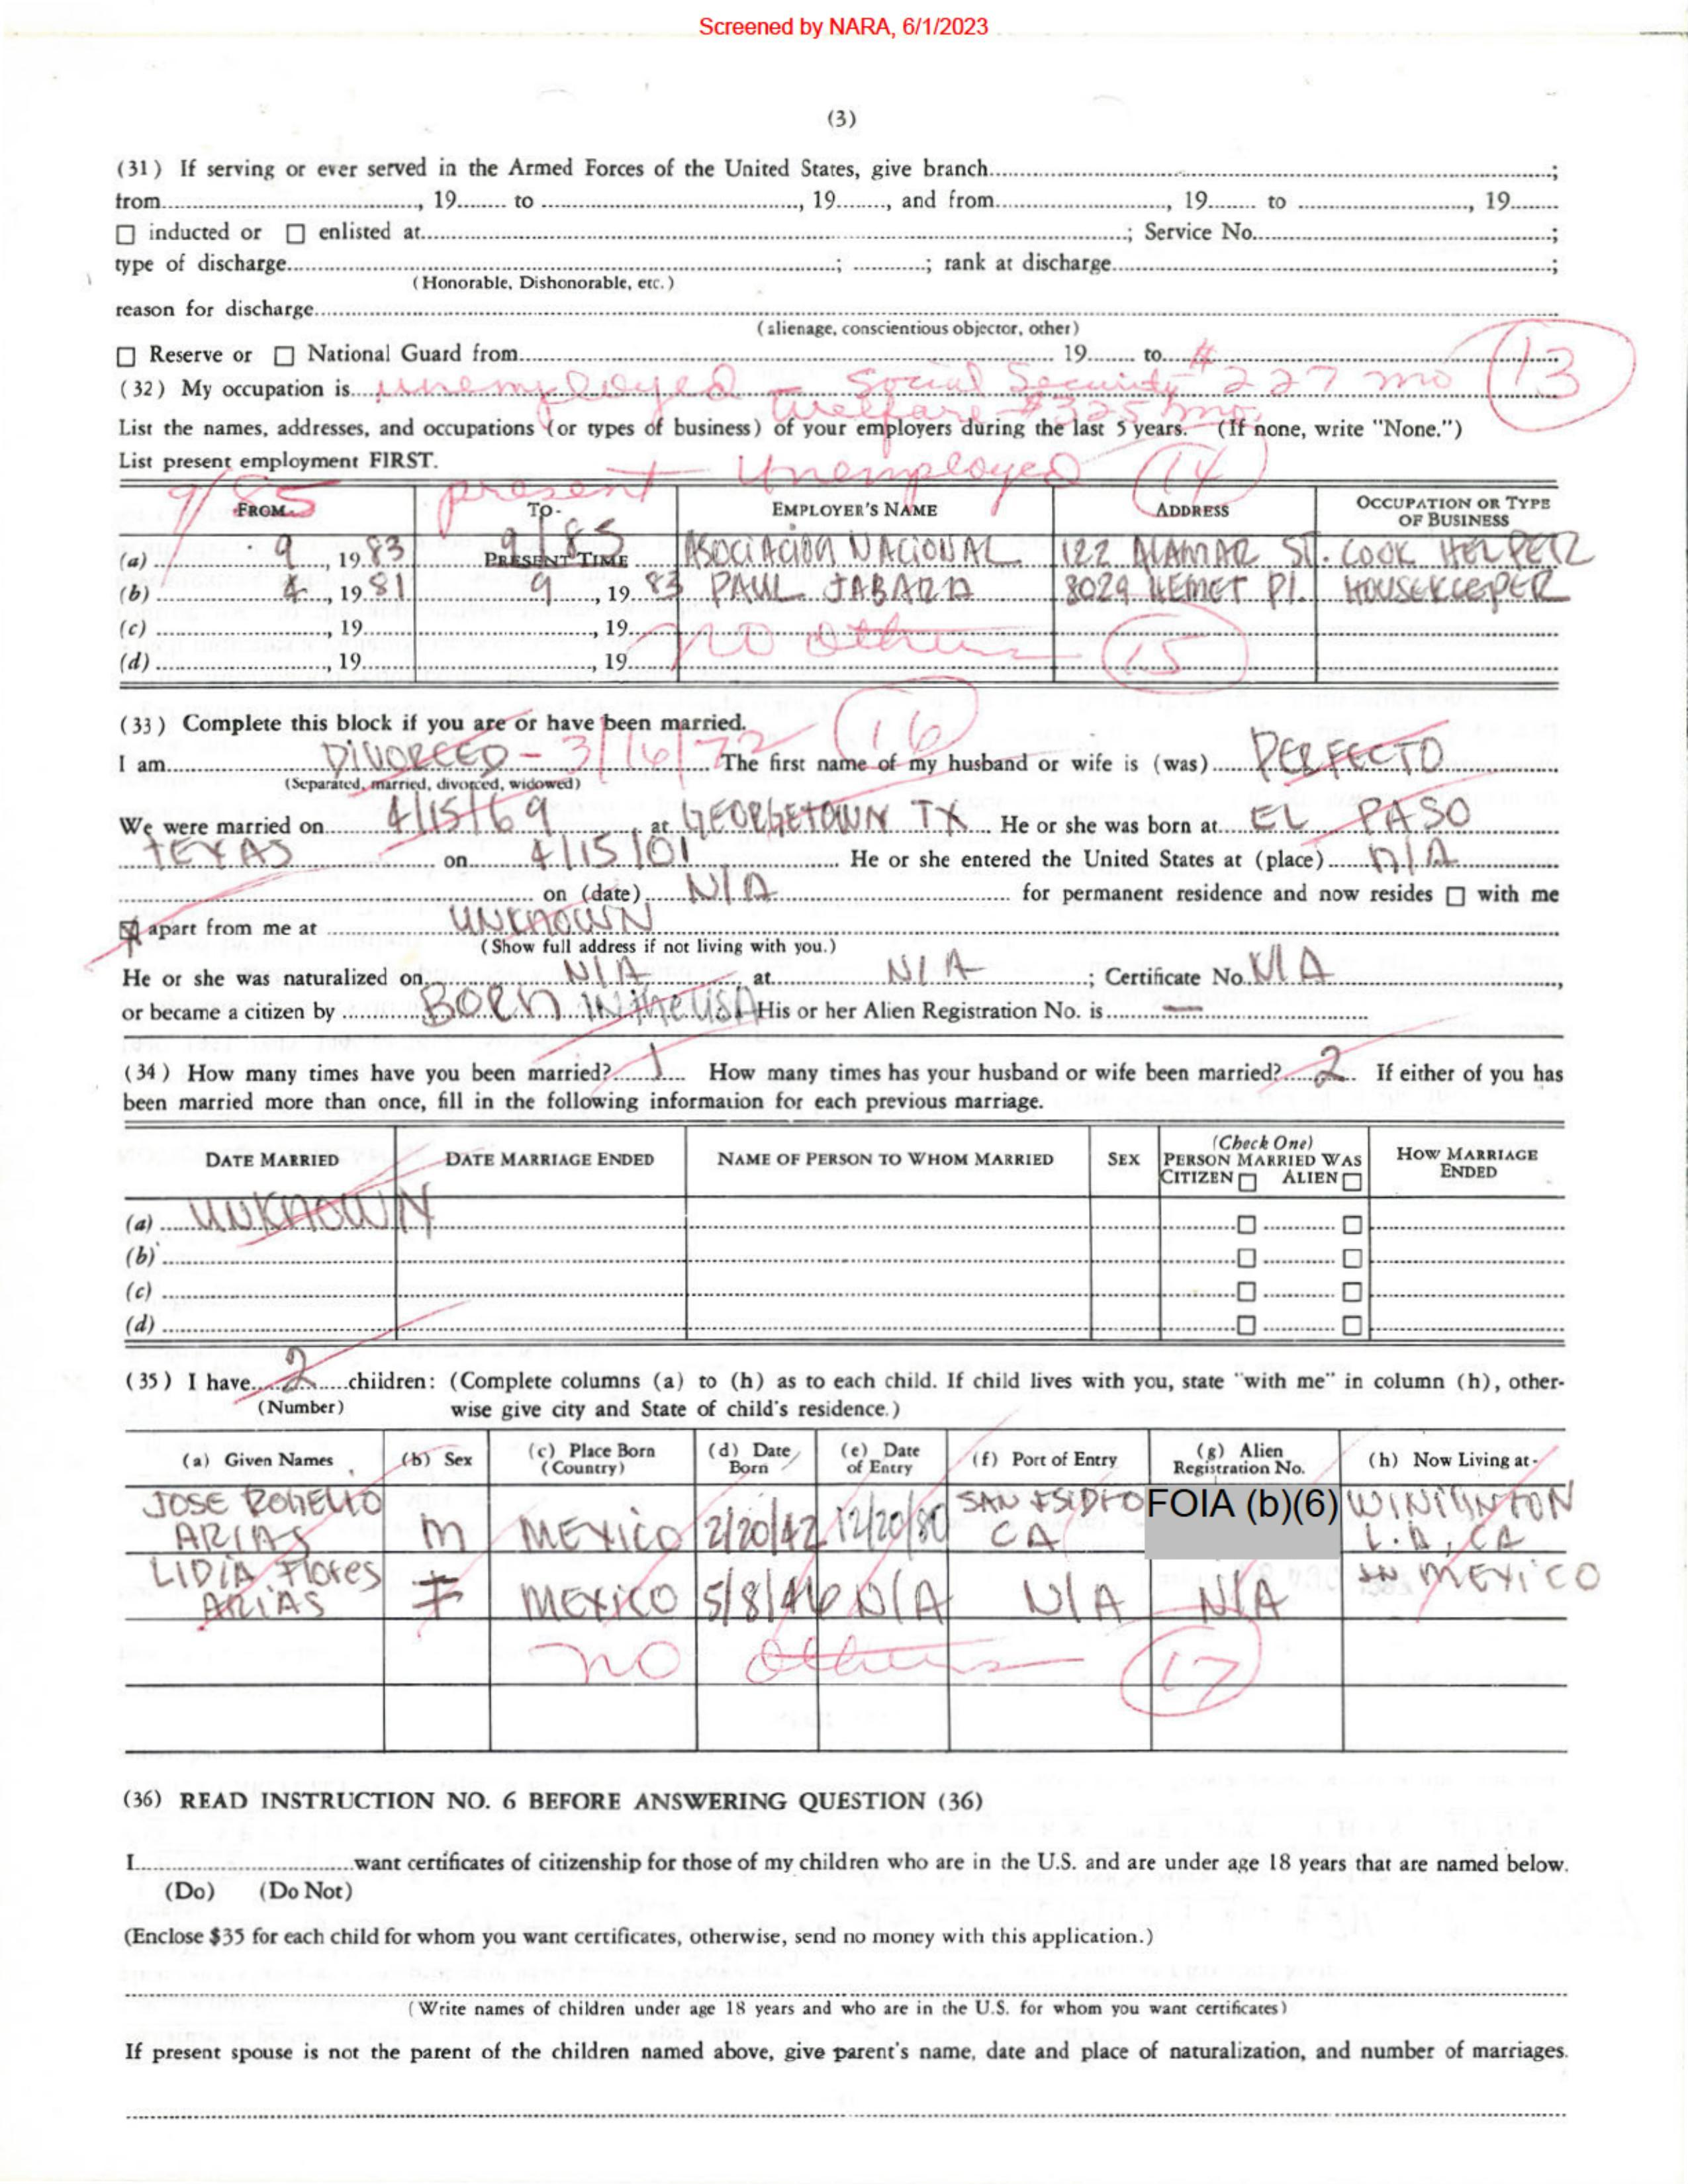 Screened by NARA, 6/1/2023
(3)
(31) If serving or ever served in the Armed Forces of the United States, give branch ;
from , 19 to , 19 , and from , 19 to , 19
☐ inducted or ☐ enlisted at ; Service No. ;
type of discharge ; ; rank at discharge ;
(Honorable, Dishonorable, etc.)
reason for discharge
(alienage, conscientious objector, other)
☐ Reserve or ☐ National Guard from 19 to
(32) My occupation is unemployed – Social Security #227 mo 13
Welfare – #325 mo.
List the names, addresses, and occupations (or types of business) of your employers during the last 5 years. (If none, write "None.")
List present employment FIRST.
9/85 present – Unemployed 14
FROM- TO- EMPLOYER'S NAME ADDRESS OCCUPATION OR TYPE OF BUSINESS
(a) 9, 1983 PRESENT TIME 9/85 ASOCIACION NACIONAL 122 ALAMAR ST. COOK HELPER
(b) 4, 1981 9, 1983 PAUL JABARA 8029 HEMET Pl. HOUSEKEEPER
(c) , 19 , 19 no others 15
(d) , 19 , 19
(33) Complete this block if you are or have been married. 16
I am DIVORCED – 3/16/72 The first name of my husband or wife is (was) PERFECTO
(Separated, married, divorced, widowed)
We were married on 4/15/69 at GEORGETOWN TX He or she was born at EL PASO
TEXAS on 4/15/01 He or she entered the United States at (place) N/A
on (date) N/A for permanent residence and now resides ☐ with me
☒ apart from me at UNKNOWN
(Show full address if not living with you.)
He or she was naturalized on N/A at N/A ; Certificate No. N/A,
or became a citizen by BORN IN the USA His or her Alien Registration No. is —
(34) How many times have you been married? 1 How many times has your husband or wife been married? 2 If either of you has
been married more than once, fill in the following information for each previous marriage.
DATE MARRIED DATE MARRIAGE ENDED NAME OF PERSON TO WHOM MARRIED SEX (Check One) PERSON MARRIED WAS CITIZEN ☐ ALIEN ☐ HOW MARRIAGE ENDED
(a) UNKNOWN ☐ ☐
(b) ☐ ☐
(c) ☐ ☐
(d) ☐ ☐
(35) I have 2 children: (Complete columns (a) to (h) as to each child. If child lives with you, state "with me" in column (h), other-
(Number) wise give city and State of child's residence.)
(a) Given Names (b) Sex (c) Place Born (Country) (d) Date Born (e) Date of Entry (f) Port of Entry (g) Alien Registration No. (h) Now Living at-
JOSE ROGELIO ARIAS M MEXICO 2/20/42 12/20/80 SAN ISIDRO CA FOIA (b)(6) WINIGNTON L.A, CA
LIDIA Flores ARIAS F MEXICO 5/8/46 N/A N/A N/A IN MEXICO
no others 17
(36) READ INSTRUCTION NO. 6 BEFORE ANSWERING QUESTION (36)
I want certificates of citizenship for those of my children who are in the U.S. and are under age 18 years that are named below.
(Do) (Do Not)
(Enclose $35 for each child for whom you want certificates, otherwise, send no money with this application.)
(Write names of children under age 18 years and who are in the U.S. for whom you want certificates)
If present spouse is not the parent of the children named above, give parent's name, date and place of naturalization, and number of marriages.